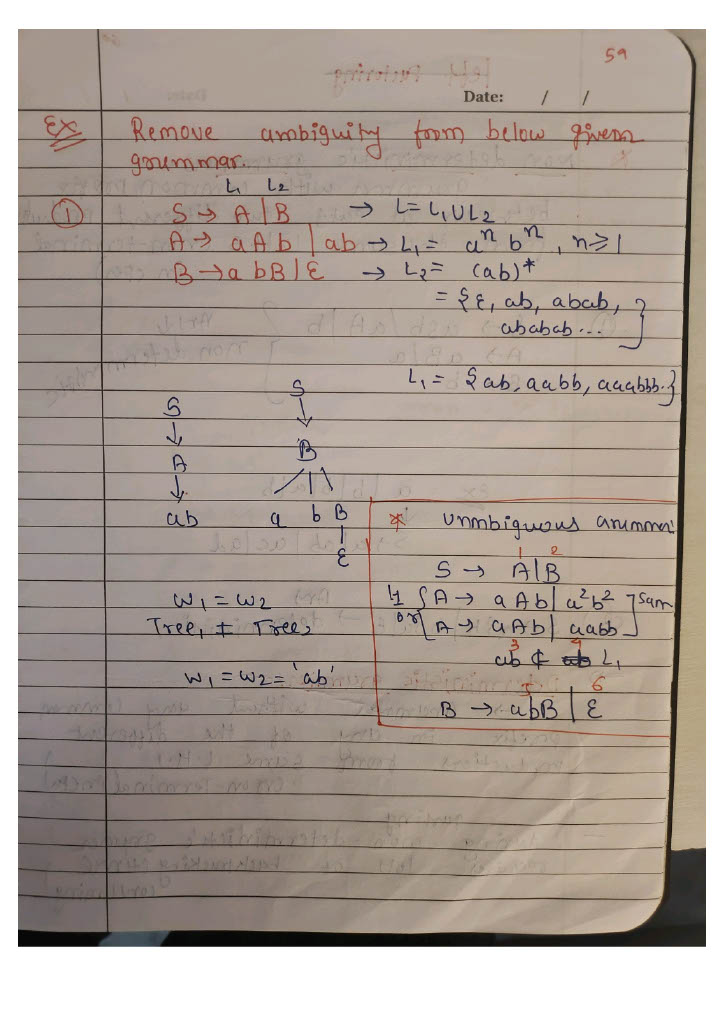 59
Date: / /
Ex Remove ambiguity from below given
grummar.
L₁ L₂
① S → A | B → L = L₁ U L₂
A → aAb | ab → L₁ = aⁿ bⁿ , n ≥ 1
B → a bB | ε → L₂ = (ab)*
= {ε, ab, abab,
ababab ... }
L₁ = {ab, aabb, aaabbb..}
S S
↓ ↓
A B
↓
ab a b B
ε
w₁ = w₂
Tree₁ ≠ Tree₂
w₁ = w₂ = 'ab'
* Unmbiguous
1 2
S → A | B
L₁ { A → aAb | a²b² ] Sam
or { A → aAb | aabb
3 4
ab ⊄ L₁
5 6
B → abB | ε